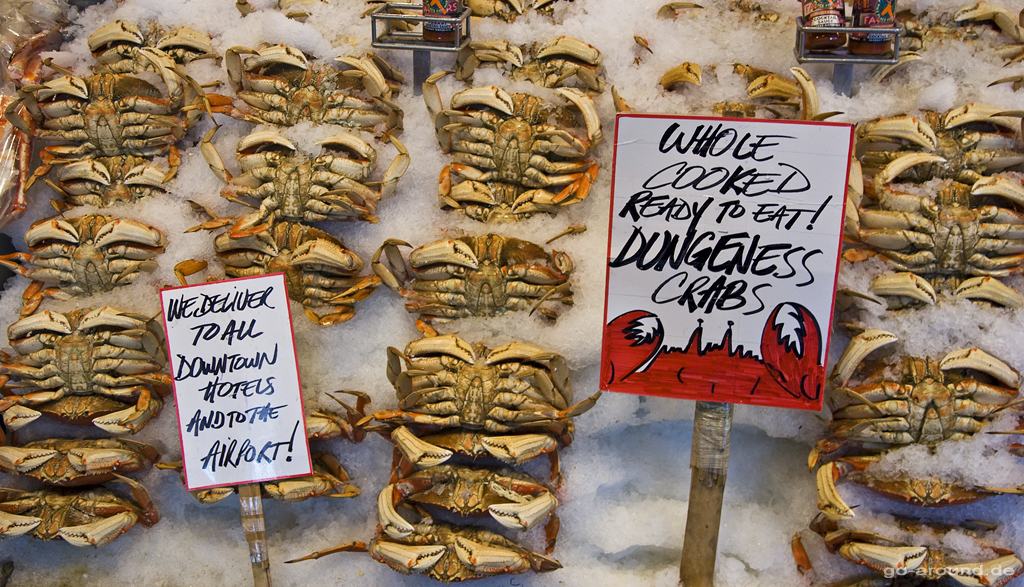 WHOLE
COOKED
READY TO EAT!
DUNGENESS
CRABS
WE DELIVER
TO ALL
DOWNTOWN
HOTELS
AND TO THE
AIRPORT!
go-around.de